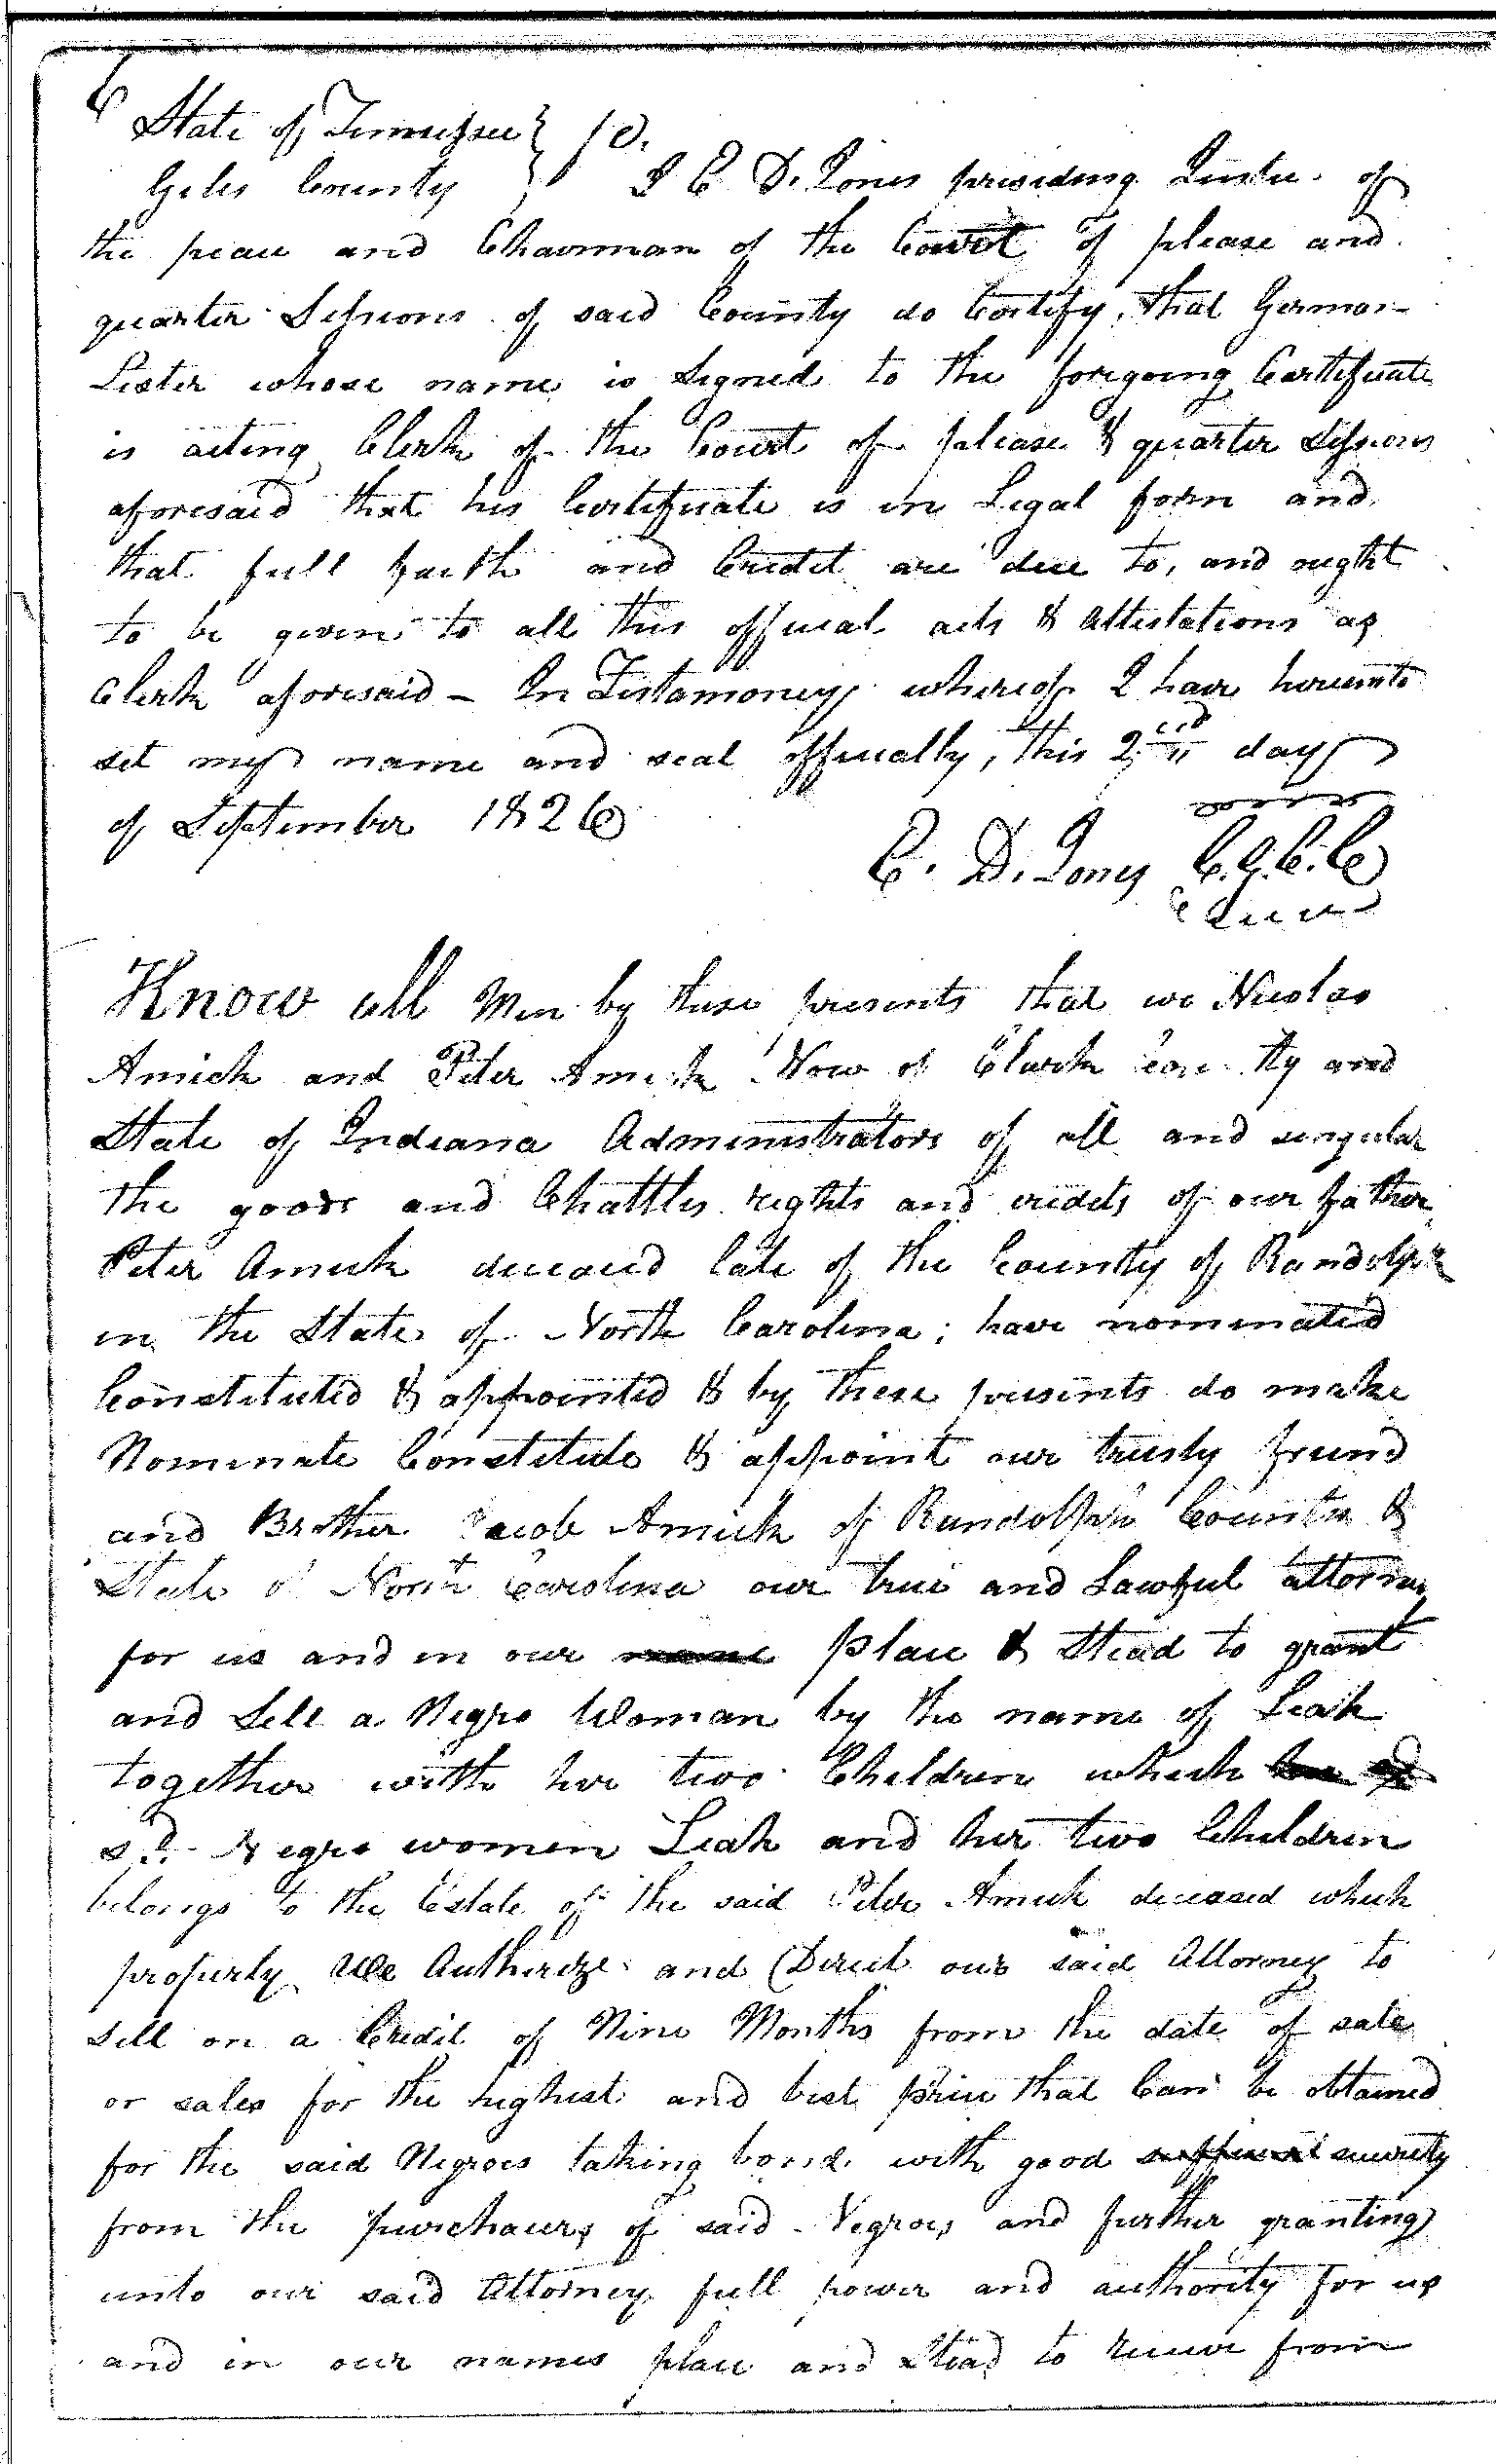 6
State of Tennessee } SS.
Giles County } I C. D. Jones presiding Justice of
the peace and Chairman of the Court of please and
quarter Sessions of said County do Certify, that German
Lester whose name is signed to the foregoing Certificate
is acting Clerk of the Court of please & quarter Sessions
aforesaid that his Certificate is in Legal form and
that full faith and Credit are due to, and ought
to be given to all this official acts & attestations as
Clerk aforesaid - In Testamoney whereof I have hereunto
set my name and seal officially, this 2nd day
of September 1826
C. D. Jones C.G.C.C
Seal
Know all Men by these presents that we Nicolas
Amick and Peter Amick Now of Clark County and
State of Indiana Administrators of all and singular
the goods and Chattles rights and credits of our father
Peter Amick deceased late of the County of Randolph
in the State of North Carolina; have nominated
Constituted & appointed & by these presents do make
Nominate Constitute & appoint our trusty friend
and Brother Jacob Amick of Randolph County &
State of North Carolina our true and Lawful attorney
for us and in our name place & Stead to grant
and Sell a Negro Woman by the name of Leah
together with her two Children which
sd. Negro women Leah and her two Children
belongs to the Estate of the said Peter Amick deceased which
property We Autherize and Direct our said Attorney to
sell on a Credit of Nine Months from the date of sale
or sales for the highest and best price that Can be obtained
for the said Negroes taking bond with good sufficient security
from the purchaser, of said Negroes and further granting
unto our said Attorney full power and authority for us
and in our names place and Stead to receive from